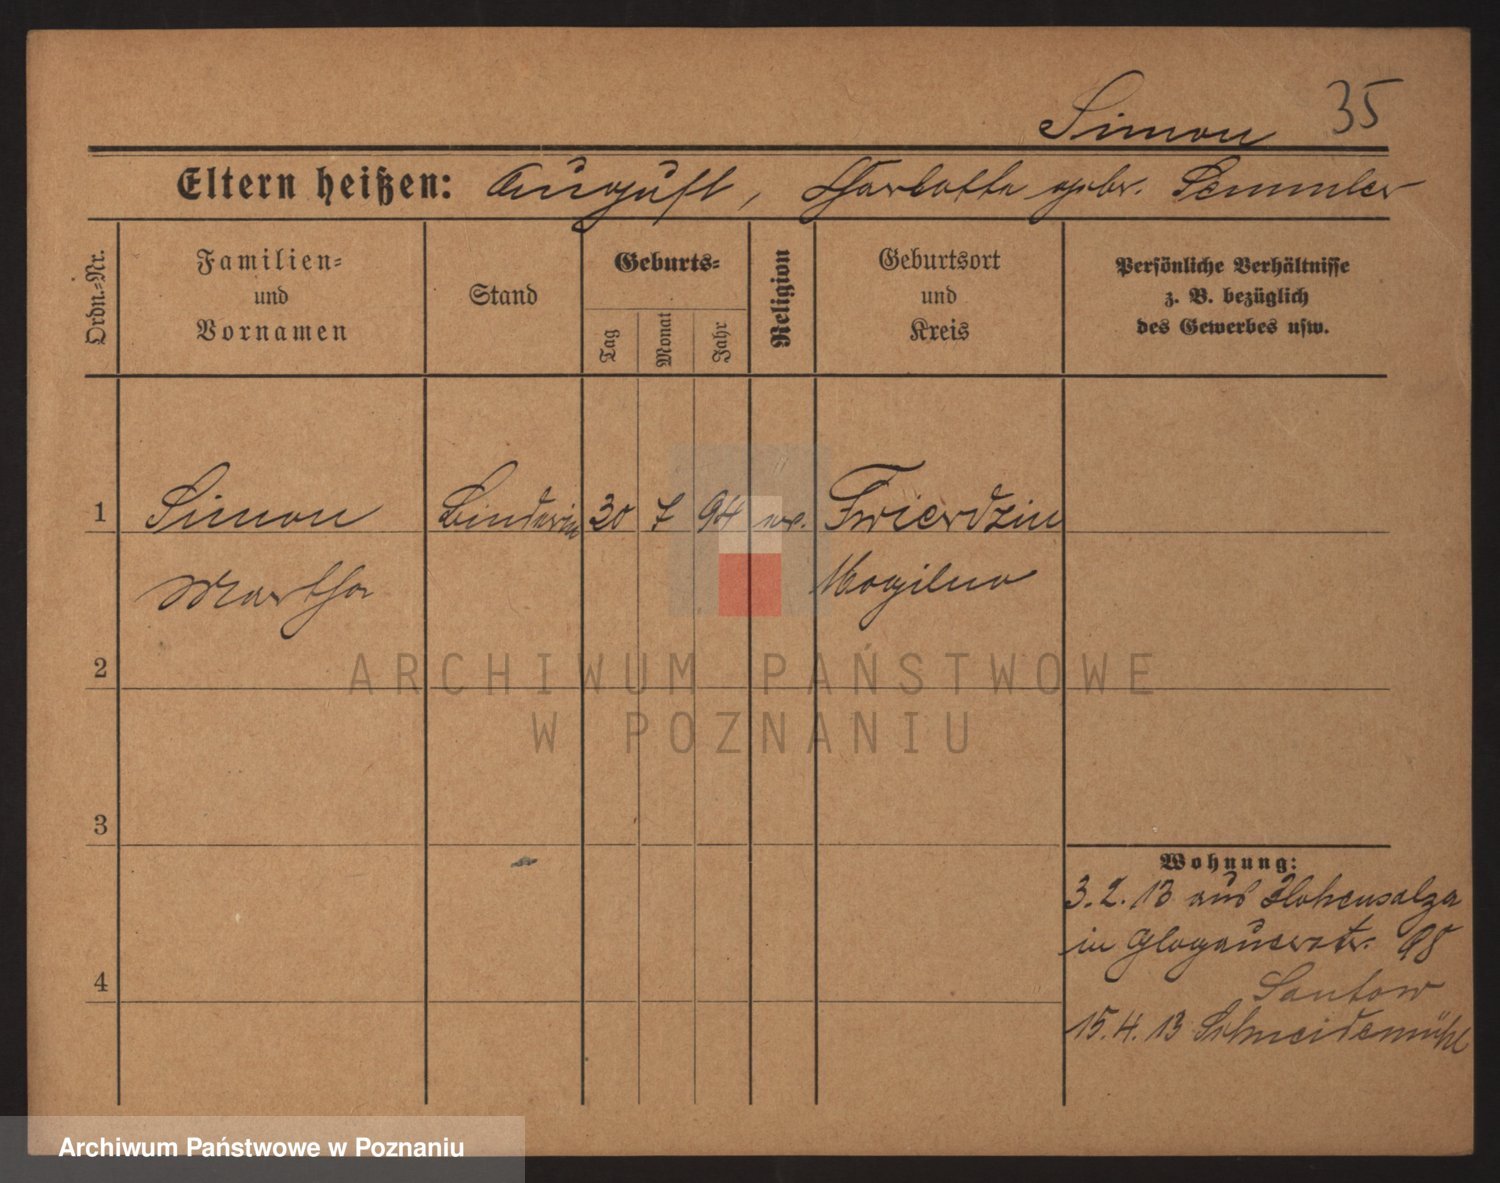 Simon 35
Eltern heißen: August, Charlotte gebr. Semmler
Ordn.-Nr.
Familien-
und
Vornamen
Stand
Geburts-
Tag
Monat
Jahr
Religion
Geburtsort
und
Kreis
Persönliche Verhältnisse
z. B. bezüglich
des Gewerbes usw.
1 Simon Binderin 30 7 94 ev. Twierdzin
Martha Mogilno
2
3
4
Wohnung:
3.2.13 aus Hohensalza
in Glogauerstr. 98
Santow
15.4.13 Schneidemühl
ARCHIWUM PAŃSTWOWE
W POZNANIU
Archiwum Państwowe w Poznaniu